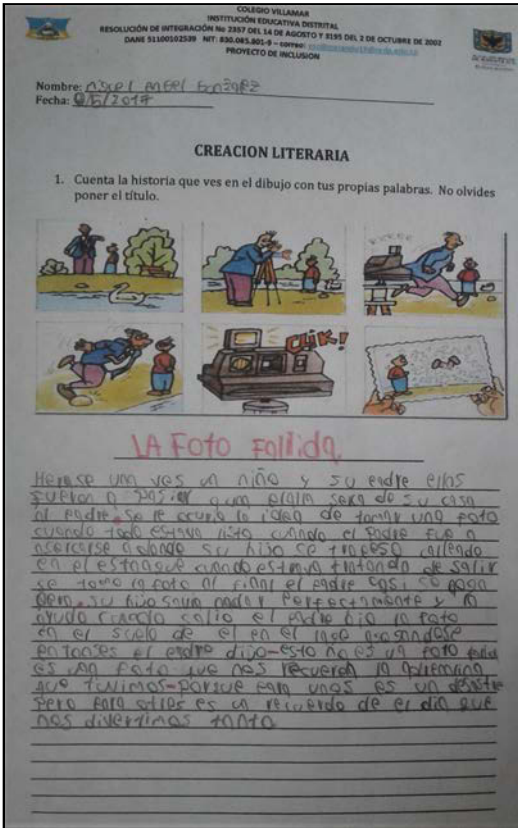 COLEGIO VILLAMAR
INSTITUCIÓN EDUCATIVA DISTRITAL
RESOLUCIÓN DE INTEGRACIÓN No 2357 DEL 14 DE AGOSTO Y 3195 DEL 2 DE OCTUBRE DE 2002
DANE 51100102539 NIT: 830.085.801-9 – correo:
PROYECTO DE INCLUSION
Nombre:
Fecha: /5/2017
CREACION LITERARIA
1. Cuenta la historia que ves en el dibujo con tus propias palabras. No olvides
poner el título.
CLIK!
LA FOTO Fallida
Herase un ves un niño y su padre ellos
fueron a a un serca de su casa
al padre se le ocurio la idea de tomar una foto
cuando todo estava listo cuando el padre fue a
asercarse a donde su hijo se tropeso callendo
en el estanque cuando estava tratando de salir
se tomo la foto al final el padre casi se
pero su hijo savia nadar perfectamente y lo
ayudo cuando salio el padre bio la foto
en el suelo de el en el lago
entonses el padre dijo-esto no es un foto
es un foto que nos recuerda la
que tuvimos-porque para unos es un desastre
pero para otros es un recuerdo de el dia que
nos divertimos tanto